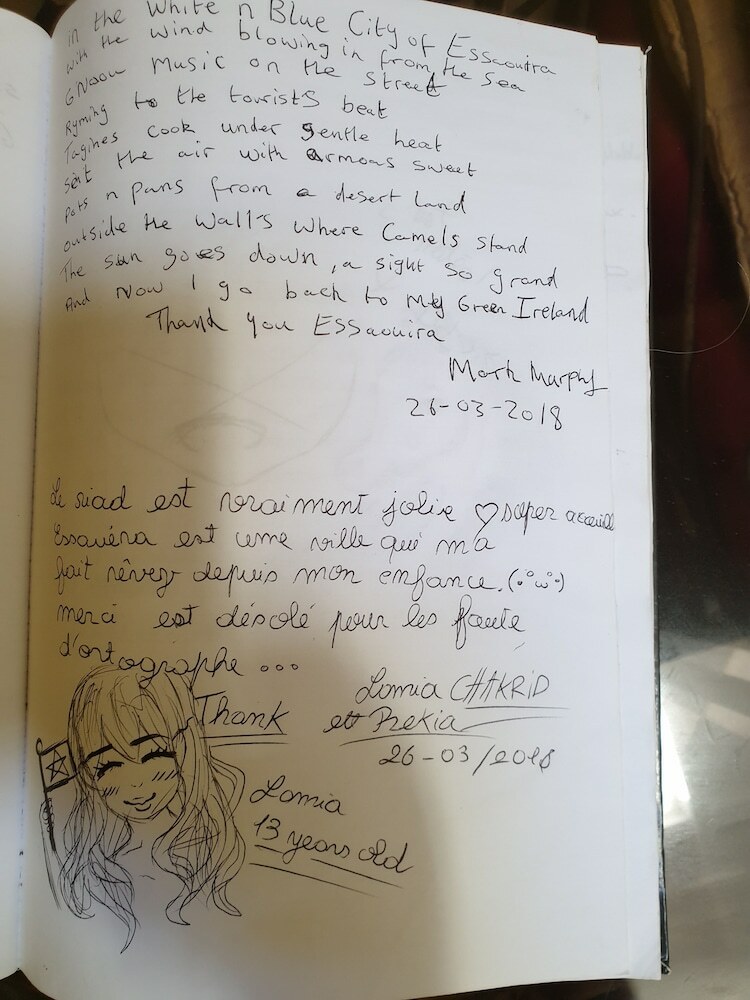 in the White n Blue City of Essaouira
with the wind blowing in from the sea
GNaou Music on the street
Ryming to the tourists beat
Tagines cook under gentle heat
sent the air with armoas sweet
Pots n pans from a desert land
outside the Wall's where Camels stand
The sun goes down, a sight so grand
And now I go back to my Green Ireland
Thank you ESSaouira
Mark Murphy
26-03-2018
Le riad est vraiment jolie ♡ super acceuille
Essauéra est une ville qui m'a
fait rêver depuis mon enfance.
merci est désolé pour les faute
d'ortographe ...
Thank
Lamia CHAKRID
et Rekia
26-03/2018
Lamia
13 years old